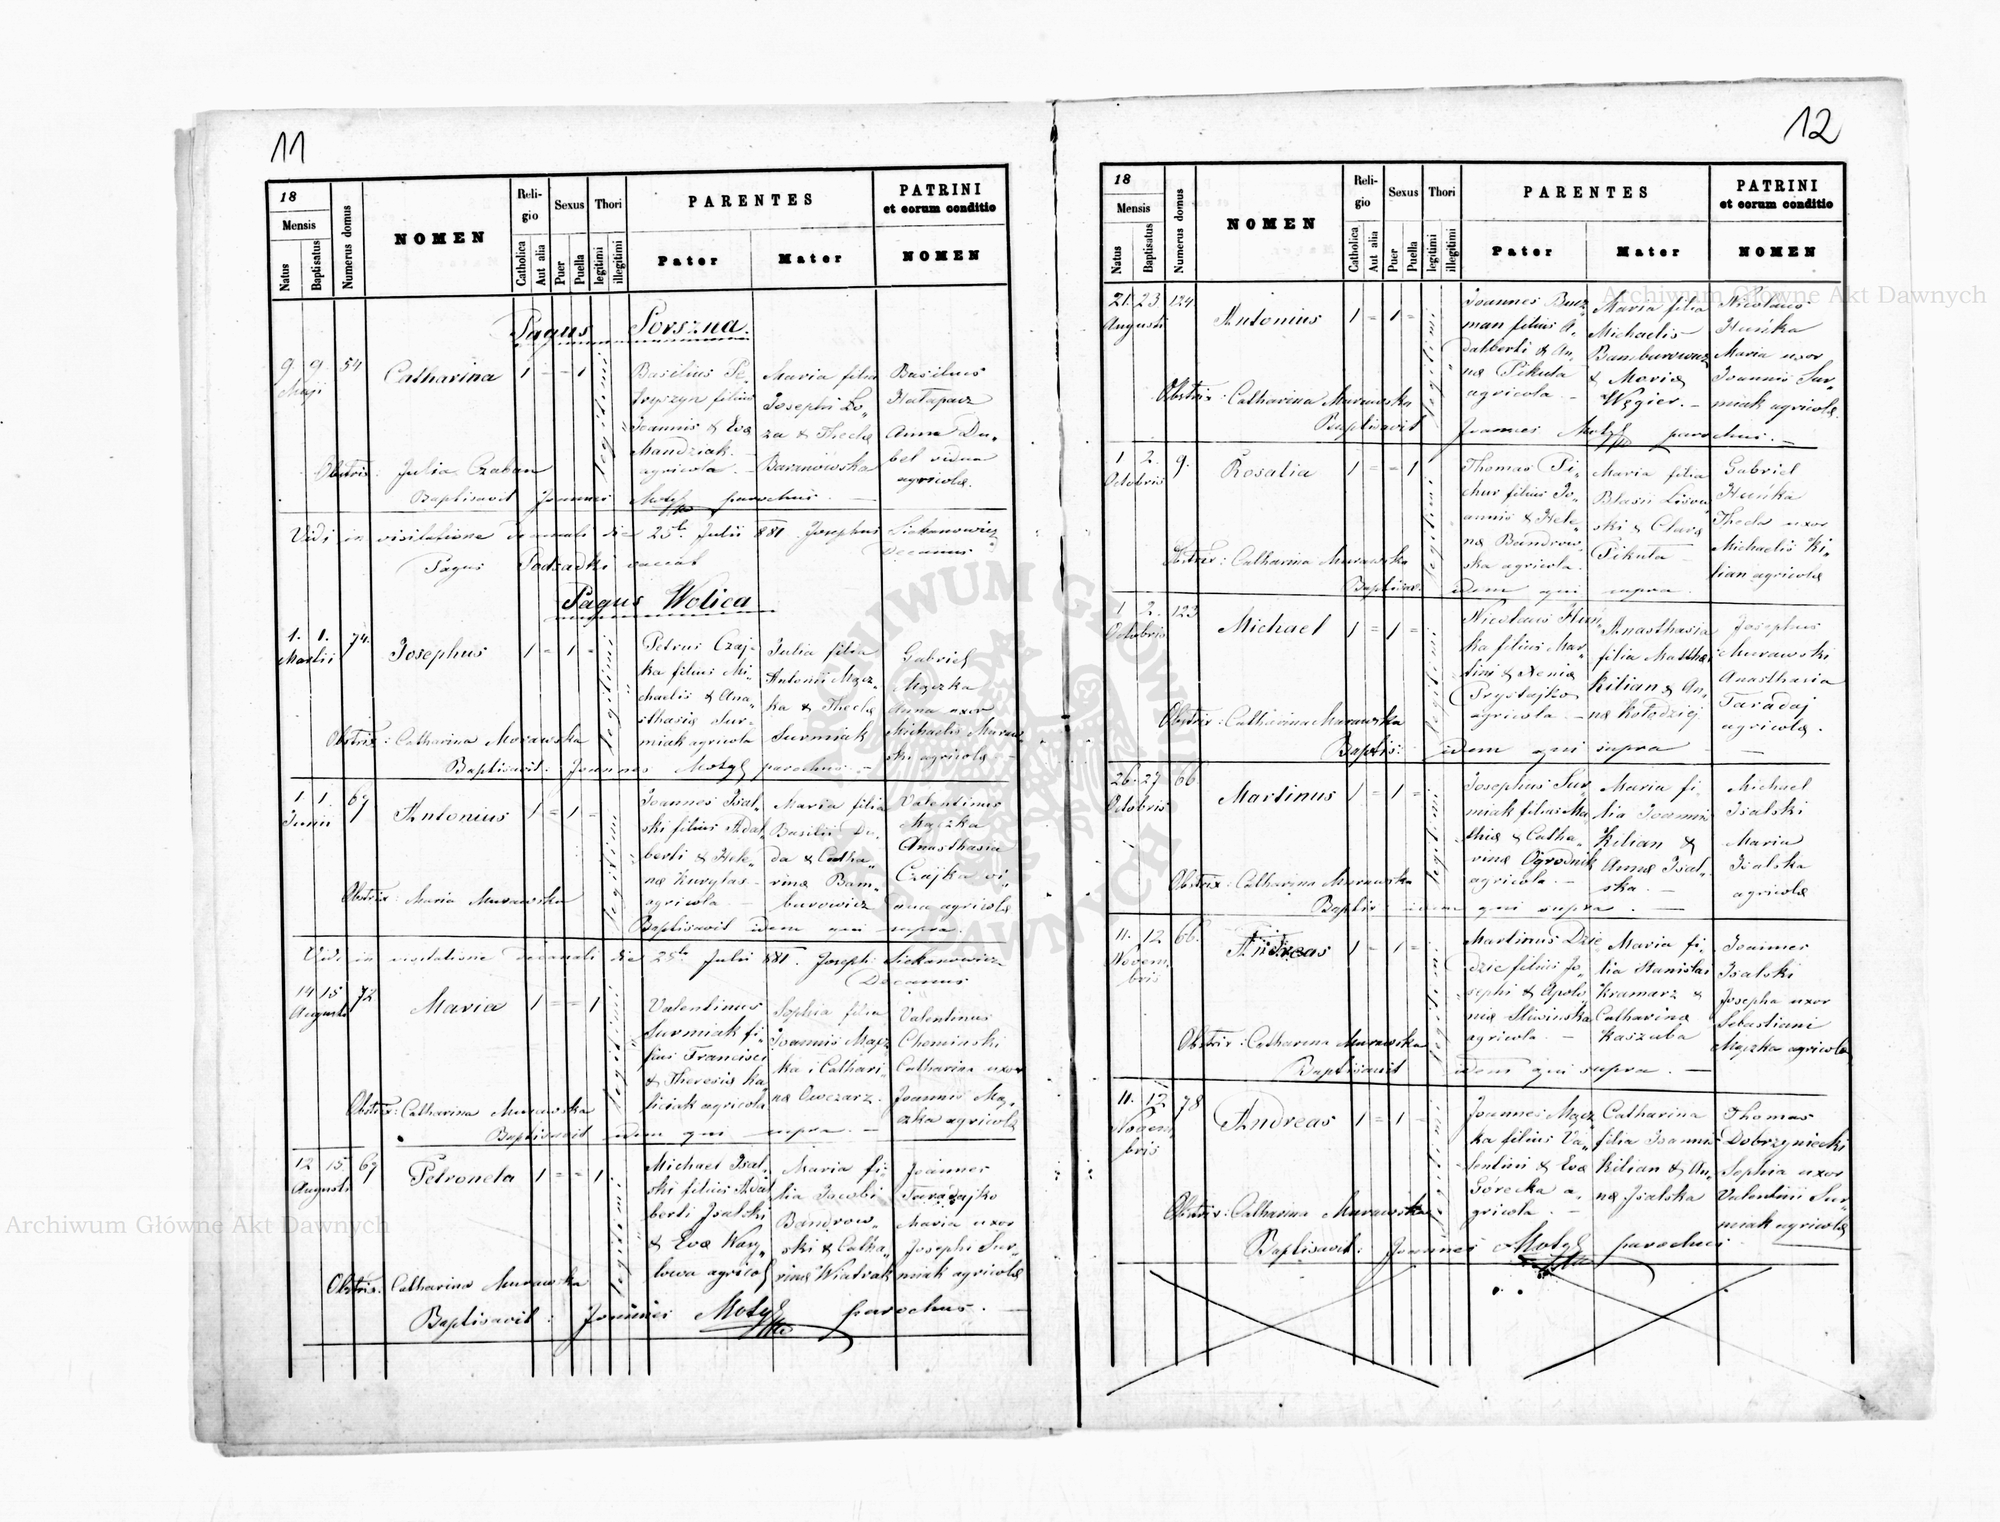 11
18
Mensis
Natus
Baptisatus
Numerus domus
NOMEN
Religio
Catholica
Aut alia
Sexus
Puer
Puella
Thori
legitimi
illegitimi
PARENTES
Pater
Mater
PATRINI
et eorum conditio
NOMEN
Pagus Porszna.
9. 9. 54
Maji
Catharina 1 - - 1
legitimi
Basilius Pe-
tryszyn filius
Joannis & Eva
Mandziak
agricola. -
Maria filia
Josephi Lo-
za & Thecla
Baranowska
Basilius
Hałapacz
Anna Du-
bel vidua
agricolæ.
Obstrix: Julia Czaban
Baptisavit Joannes Motyl parochus. -
Vidi in visitatione decanali die 25ta Julii 881 Josephus Siekanowicz
Decanus
Pagus Podsadki vacat
Pagus Wolica
1. 1. 74.
Martii
Josephus 1 = 1 =
legitimi
Petrus Czaj-
ka filius Mi-
chaelis & Ana-
sthasiæ Sur-
miak agricola
Julia filia
Antonii Mącz-
ka & Theclæ
Surmiak
Gabriel
Mączka
Anna uxor
Michaelis Muraw-
ski agricolæ
Obstrix: Catharina Morawska
Baptisavit: Joannes Motyl parochus -
1 1. 67
Junii
Antonius 1 = 1 =
legitimi
Joannes Isal-
ski filius Adal-
berti & Hele-
næ Kurylas -
agricola. -
Maria filia
Basilii Du-
da & Catha-
rinæ Bam-
burowicz
Valentinus
Mączka
Anasthasia
Czajka vi-
dua agricolæ
Obstrix: Maria Murawska
Baptisavit idem qui supra.
Vidi in visitatione decanali die 25ta Julii 881. Joseph: Siekanowicz
Decanus
14 15 72
Augusti
Maria 1 = = 1
legitimi
Valentinus
Surmiak fi-
lius Francisci
& Theresiæ Ka-
liciak agricola
Sophia filia
Joannis Mącz-
ka i Cathari-
næ Owczarz.
Valentinus
Cheminski
Catharina uxor
Joannis Mą-
czka agricolæ
Obstrix: Catharina Murawska
Baptisavit idem qui supra. -
12 15. 67
Augusti
Petronela 1 = = 1
legitimi
Michael Isal-
ski filius Adal-
berti Isalski
& Eva Wary-
lowa agricol
Maria fi-
lia Jacobi
Bandrow-
ski & Catha-
rinæ Wiatrak
Joannes
Taradajko
Maria uxor
Josephi Sur-
miak agricolæ
Obstrix. Catharina Murawska
Baptisavit: Joannes Motyl parochus. -
12
18
Mensis
Natus
Baptisatus
Numerus domus
NOMEN
Religio
Catholica
Aut alia
Sexus
Puer
Puella
Thori
legitimi
illegitimi
PARENTES
Pater
Mater
PATRINI
et eorum conditio
NOMEN
21. 23 124
Augusti
Antonius 1 = 1 =
legitimi
Joannes Bucz-
man filius A-
dalberti & An-
næ Pikuta
agricola. -
Maria filia
Michaelis
Bamburowicz
& Mariæ
Węgier. -
Nicolaus
Huńka
Maria uxor
Joannis Sur-
miak agricolæ.
Obstrix: Catharina Murawska
Baptisavit Joannes Motyl parochus. -
1 2. 9.
Octobris
Rosalia 1 = = 1
legitimi
Thomas Pi-
chur filius Jo-
annis & Hele-
næ Bandrow-
ska agricola.
Maria filia
Blasii Lisow-
ski & Claræ
Pikuta
Gabriel
Huńka
Thecla uxor
Michaelis Ki-
lian agricolæ
Obstrix: Catharina Murawska
Baptisav. idem qui supra.
1 2. 123
Octobris
Michael 1 = 1 =
legitimi
Nicolaus Huń-
ka filius Mar-
tini & Xeniæ
Prystajko
agricola. -
Anasthasia
filia Matthæi
Kilian & An-
næ Kołodziej
Josephus
Murawski
Anasthasia
Taradaj
agricolæ.
Obstrix: Catharina Murawska
Baptis: idem qui supra -
26. 27 66
Octobris
Martinus 1 = 1 =
legitimi
Josephus Sur-
miak filius Ma-
thiæ & Catha-
rinæ Ogrodnik
agricola. -
Maria fi-
lia Joannis
Kilian &
Annæ Isal-
ska. -
Michael
Isalski
Maria
Isalska
agricolæ
Obstrix: Catharina Murawska
Baptis: idem qui supra. -
11. 12 66.
Novem-
bris
Andreas 1 = 1 =
legitimi
Martinus Dzie-
dzic filius Jo-
sephi & Apolo-
niæ Sliwinska
agricola. -
Maria fi-
lia Stanislai
Kramarz &
Catharinæ
Kaszuba
Joannes
Isalski
Josepha uxor
Sebastiani
Mączka agricolæ
Obstrix: Catharina Murawska
Baptisavit idem qui supra. -
11. 12 78
Novem-
bris
Andreas 1 = 1 =
legitimi
Joannes Mącz-
ka filius Va-
lentini & Eva
Górecka a-
gricola. -
Catharina
filia Joannis
Kilian & An-
næ Isalska
Thomas
Dobrzyniecki
Sophia uxor
Valentini Sur-
miak agricolæ
Obstrix: Catharina Murawska
Baptisavit: Joannes Motyl parochus
Archiwum Główne Akt Dawnych
Archiwum Główne Akt Dawnych
ARCHIWUM GŁÓWNE AKT DAWNYCH